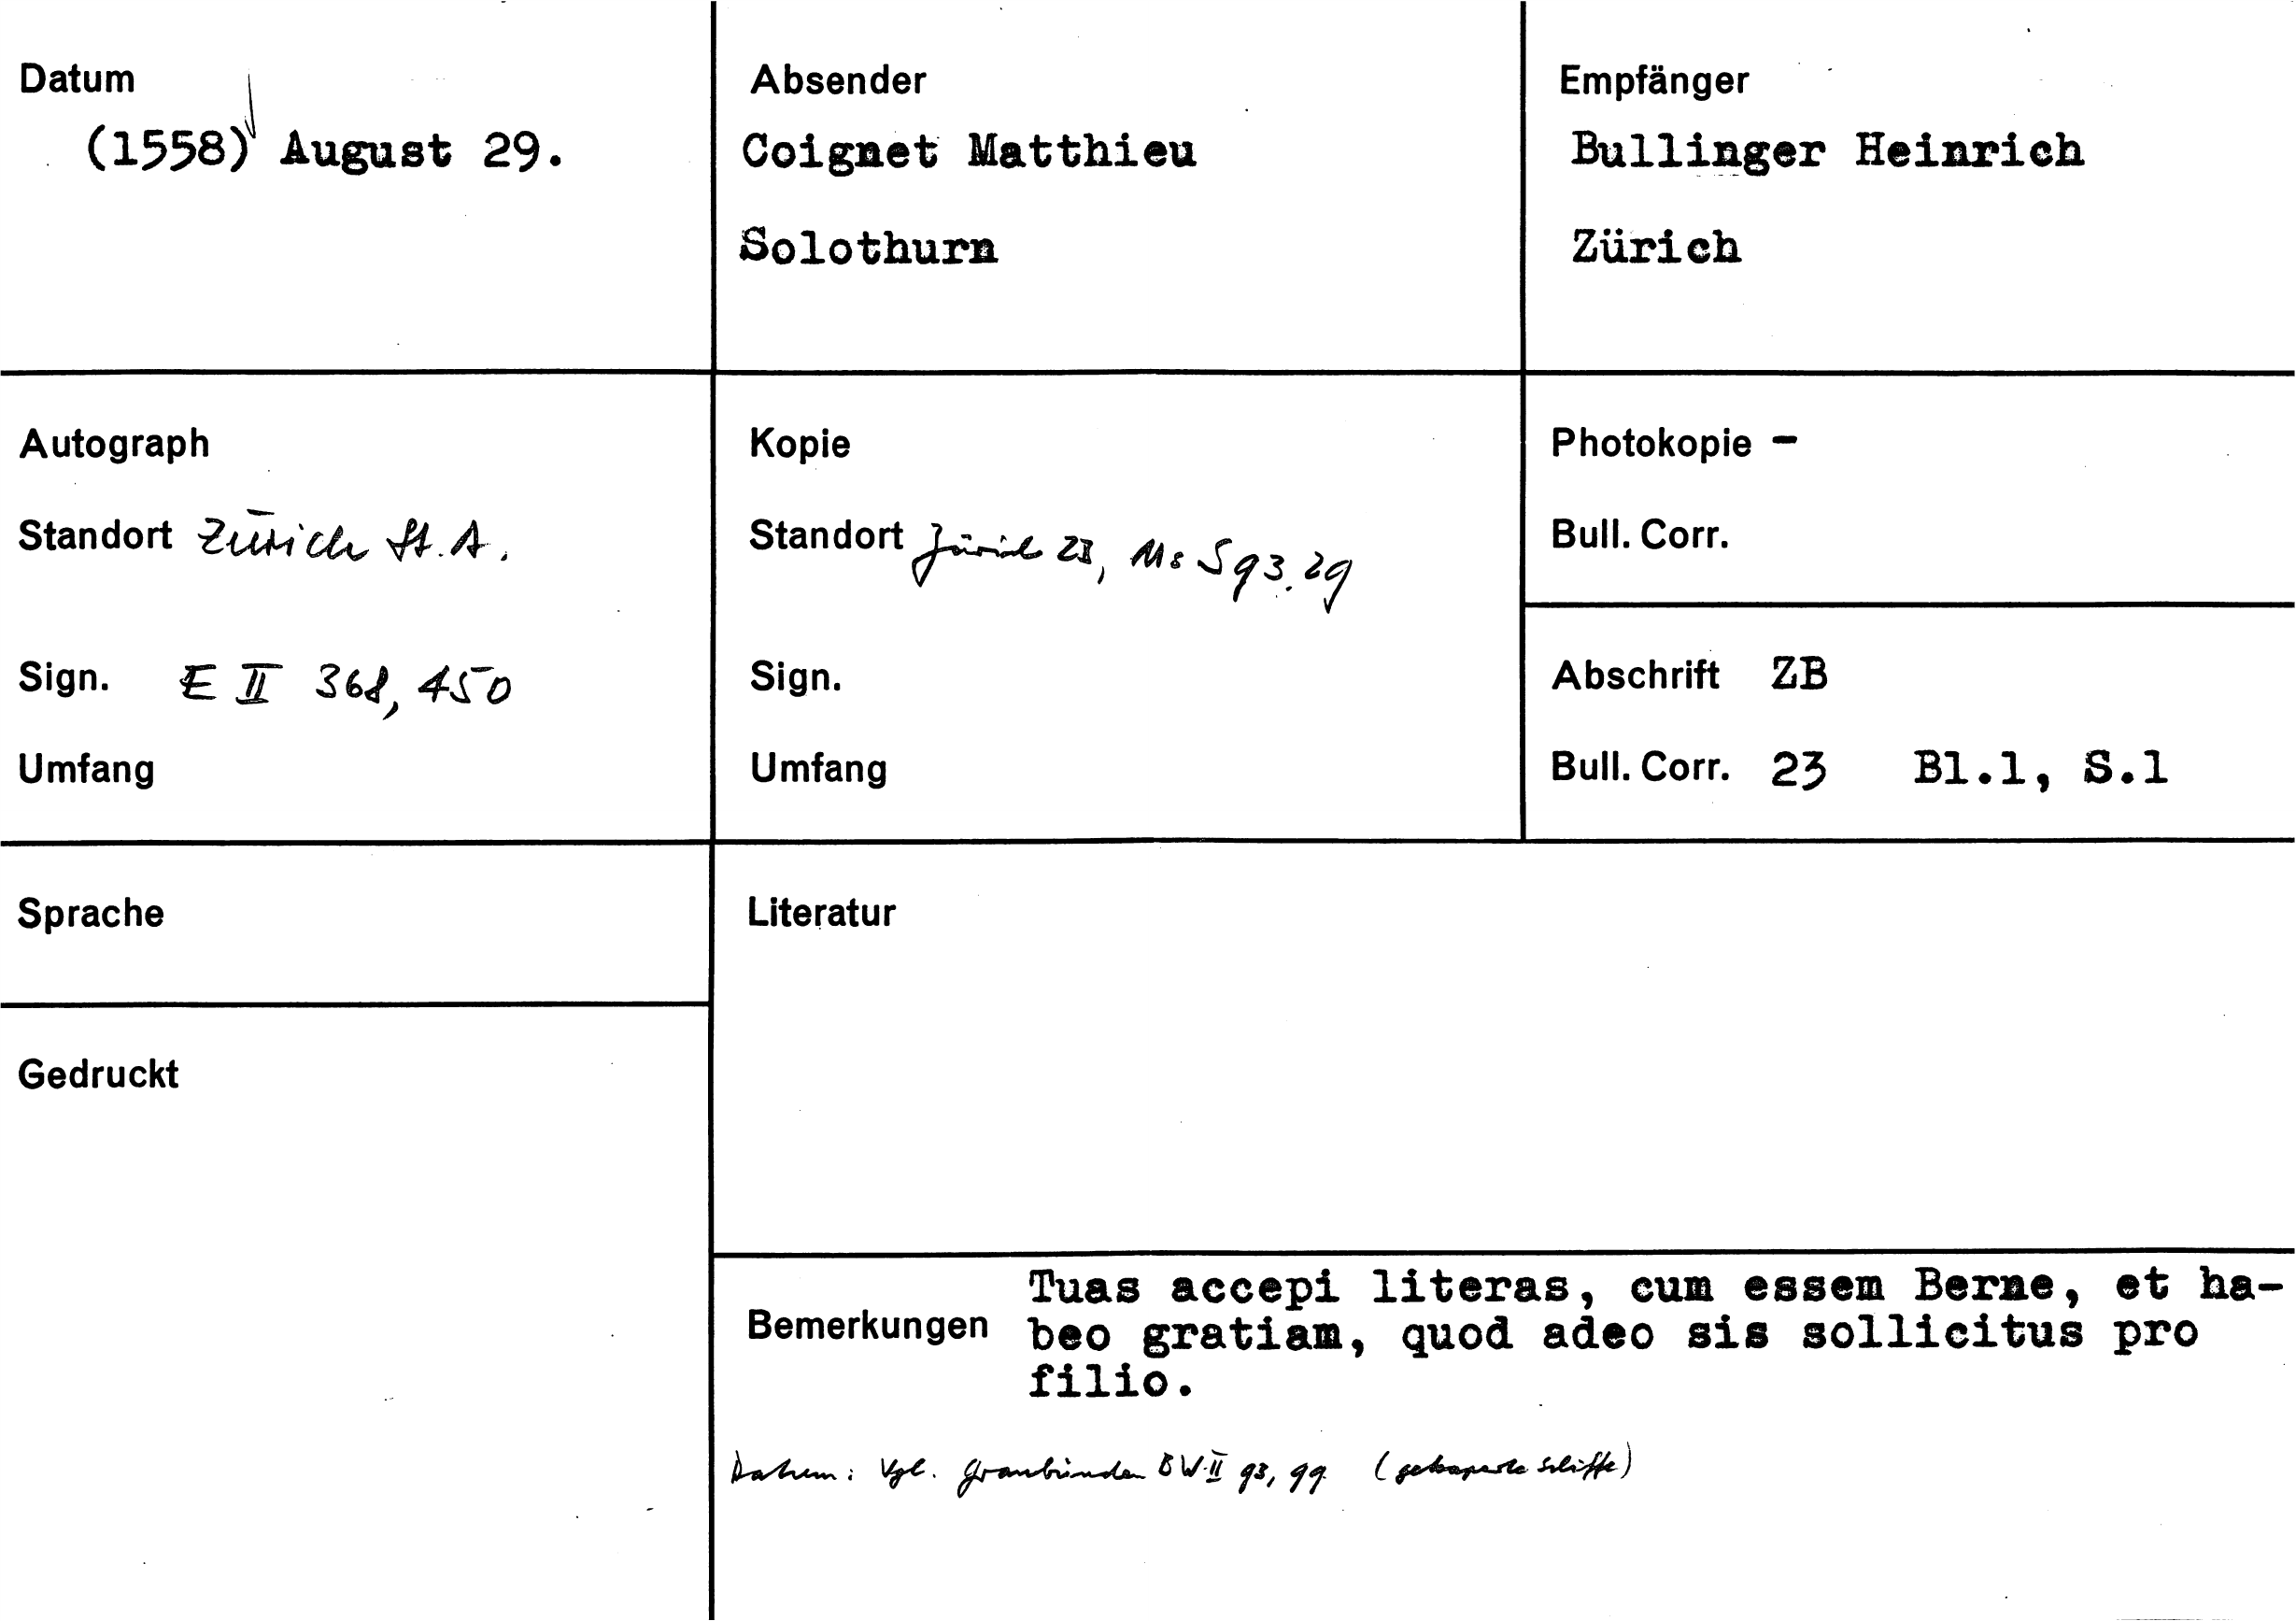 Datum
(1558) August 29.
Absender
Coignet Matthieu
Solothurn
Empfänger
Bullinger Heinrich
Zürich
Autograph
Standort Zürich St. A.
Sign. E II 368, 450
Umfang
Kopie
Standort Zürich ZB, Ms S 93. 29
Sign.
Umfang
Photokopie -
Bull. Corr.
Abschrift ZB
Bull. Corr. 23 Bl.1, S.1
Sprache
Gedruckt
Literatur
Bemerkungen
Tuas accepi literas, cum essem Berne, et ha-
beo gratiam, quod adeo sis sollicitus pro
filio.
Datum: Vgl. Graubünden BW II 93, 99 (gekaperte Schiffe)